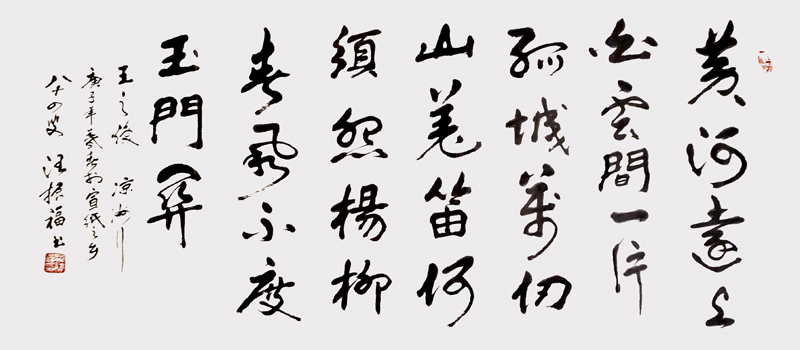 黄河遠上
白雲間一片
孤城萬仞
山羌笛何
須怨楊柳
春風不度
玉門關
王之渙 凉州
庚子年暮春於宣紙之乡
八十四叟 汪振福书